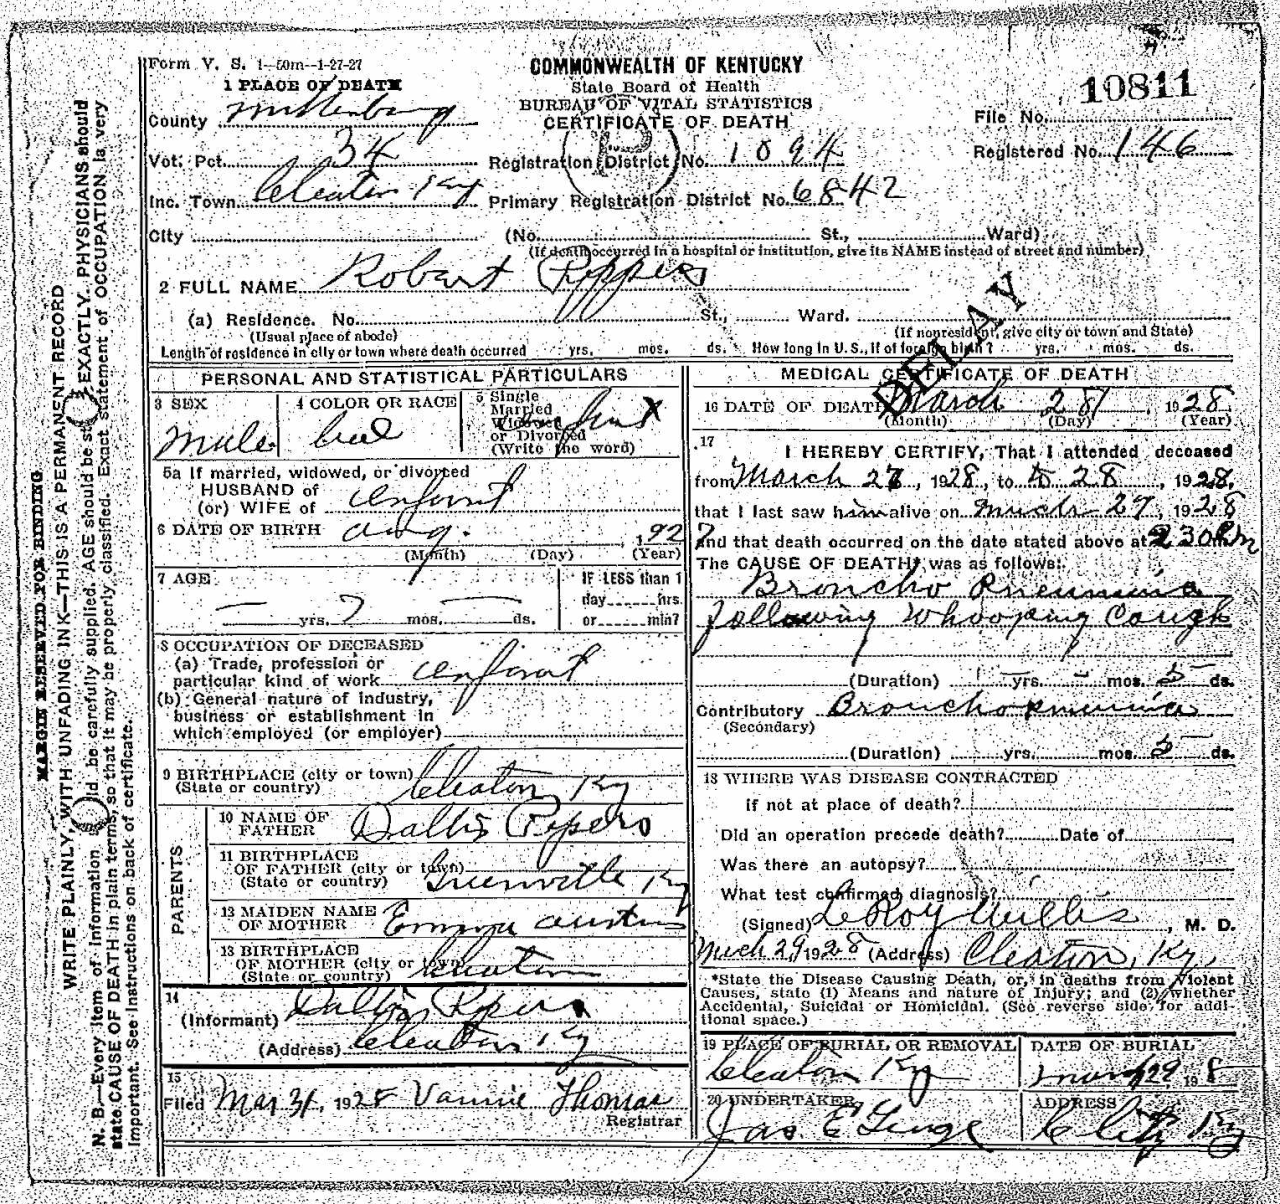 Form V. S. 1-50m-1-27-27
COMMONWEALTH OF KENTUCKY
State Board of Health
BUREAU OF VITAL STATISTICS
CERTIFICATE OF DEATH
10811
File No.
Registered No. 146
1 PLACE OF DEATH
County Muhlenberg
Vot. Pct. 34
Inc. Town Cleaton Ky
City
Registration District No. 1094
Primary Registration District No. 6842
(No. St., Ward)
(If death occurred in a hospital or institution, give its NAME instead of street and number)
2 FULL NAME Robart
(a) Residence. No. St., Ward.
(Usual place of abode) (If nonresident, give city or town and State)
Length of residence in city or town where death occurred yrs. mos. ds. How long in U.S., if of foreign birth? yrs. mos. ds.
DELAY
PERSONAL AND STATISTICAL PARTICULARS
3 SEX
Male
4 COLOR OR RACE
5 Single
Married
Widowed
or Divorced
(Write the word)
X
5a If married, widowed, or divorced
HUSBAND of
(or) WIFE of infant
6 DATE OF BIRTH Aug. 1927
(Month) (Day) (Year)
7 AGE
— yrs. 7 mos. — ds.
IF LESS than 1
day hrs.
or min?
8 OCCUPATION OF DECEASED
(a) Trade, profession or
particular kind of work infant
(b) General nature of industry,
business or establishment in
which employed (or employer)
9 BIRTHPLACE (city or town)
(State or country) Cleaton Ky
PARENTS
10 NAME OF
FATHER
11 BIRTHPLACE
OF FATHER (city or town)
(State or country) Greenville Ky
13 MAIDEN NAME
OF MOTHER Emma
13 BIRTHPLACE
OF MOTHER (city or town)
(State or country) Cleaton
14
(Informant)
(Address) Cleaton Ky
15
Filed Mar 31, 1928 Vannie Thomas
Registrar
MEDICAL CERTIFICATE OF DEATH
16 DATE OF DEATH March 28 1928
(Month) (Day) (Year)
17
I HEREBY CERTIFY, That I attended deceased
from March 27, 1928, to 28, 1928,
that I last saw him alive on March 27, 1928
and that death occurred on the date stated above at 230 Pm
The CAUSE OF DEATH* was as follows:
Broncho Pneumonia
following Whooping Cough
(Duration) yrs. mos. 5 ds.
Contributory Bronchopneumonia
(Secondary)
(Duration) yrs. mos. 5 ds.
18 WHERE WAS DISEASE CONTRACTED
if not at place of death?
Did an operation precede death? Date of
Was there an autopsy?
What test confirmed diagnosis?
(Signed) LeRoy Willis, M. D.
March 29, 1928 (Address) Cleaton, Ky.
*State the Disease Causing Death, or, in deaths from Violent
Causes, state (1) Means and nature of Injury; and (2) whether
Accidental, Suicidal or Homicidal. (See reverse side for addi-
tional space.)
19 PLACE OF BURIAL OR REMOVAL
Cleaton Ky
DATE OF BURIAL
March 29 1928
20 UNDERTAKER
Jas. E
ADDRESS
C City Ky
MARGIN RESERVED FOR BINDING
WRITE PLAINLY, WITH UNFADING INK—THIS IS A PERMANENT RECORD
N. B.—Every item of information should be carefully supplied. AGE should be stated EXACTLY. PHYSICIANS should
state CAUSE OF DEATH in plain terms, so that it may be properly classified. Exact statement of OCCUPATION is very
important. See instructions on back of certificate.